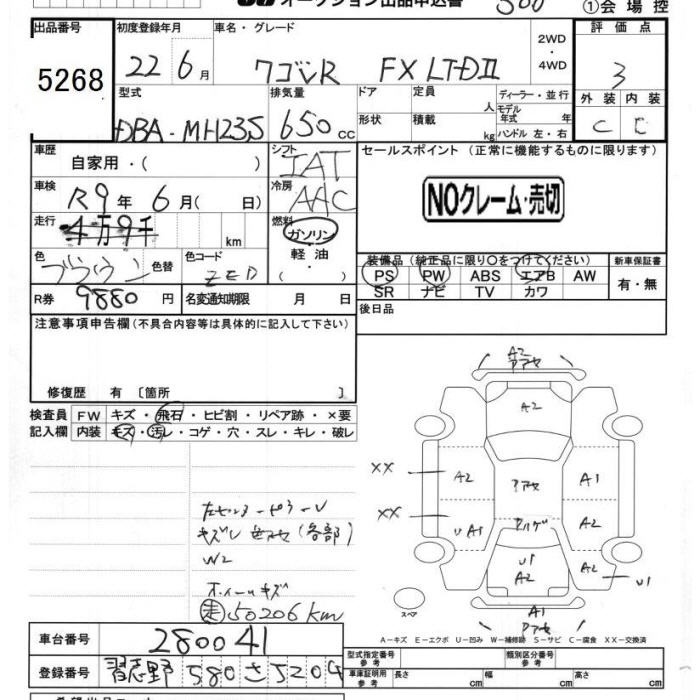 オークション出品申込書
①会場控
出品番号
5268
初度登録年月
22 6月
車名・グレード
ワゴンR FX LTDⅡ
2WD
・
4WD
評価点
3
外装 内装
C C
型式
DBA-MH23S
排気量
650cc
ドア
形状
定員
人
積載
kg
ディーラー・並行
モデル
年式 年
ハンドル 左・右
車歴
自家用・( )
車検
R9年 6月( 日)
走行
4万9千 km
シフト
IAT
冷房
AAC
燃料
ガソリン
・
軽油
・
( )
色
ブラウン 色替
色コード
ZED
R券 9880円 名変通知期限 月 日
セールスポイント (正常に機能するものに限ります)
NOクレーム・売切
装備品 (純正品に限り○をつけてください)
PS PW ABS エアB AW
SR ナビ TV カワ
新車保証書
有・無
後日品
注意事項申告欄(不具合内容等は具体的に記入して下さい)
修復歴 有 [箇所 ]
検査員
記入欄
FW キズ・飛石・ヒビ割・リペア跡・×要
内装 キズ・汚レ・コゲ・穴・スレ・キレ・破レ
キズU (各部)
W2
ホイールキズ
走 50206km
A2
アセ
A2
XX A2 アセ A1
XX UA1 アハゲ A2
U1
A2
A2 U1
A1
アセ
スペア
A-キズ E-エクボ U-凹み W-補修跡 S-サビ C-腐食 XX-交換済
車台番号 280041
登録番号 習志野 580 さ 5204
型式指定番号
参考
類別区分番号
参考
車庫証明用
参考
長さ cm 幅 cm 高さ cm